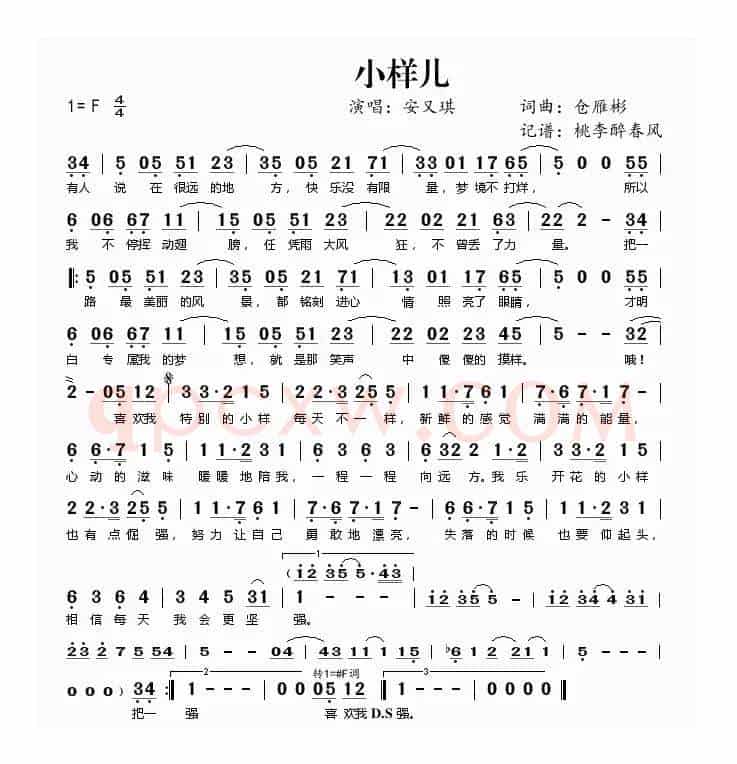 小样儿
1= F 4/4 演唱：安又琪 词曲：仓雁彬
记谱：桃李醉春风
34 | 5 05 51 23 | 35 01 21 71 | 33 01 17 65 | 5 0 0 55 |
有人 说 在 很远 的地 方，快乐没 有限 量，梦 境不 打烊， 所以
6 06 67 11 | 15 05 51 23 | 22 02 21 63 | 22 2 - 34 |
我 不 停挥 动翅 膀，任 凭雨 大风 狂，不 曾丢 了力 量。 把一
5 05 51 23 | 35 01 21 71 | 13 01 17 65 | 5 0 0 55 |
路 最 美丽 的风 景，都 铭刻 进心 情 照 亮了 眼睛， 才明
6 06 67 11 | 15 05 51 23 | 22 02 23 45 | 5 - - 32 |
白 专 属我 的梦 想，就 是那 笑声 中 傻 傻的 摸样。 哦！
2 - 05 12 | 33·215 | 22·3 25 | 11·2 61 | 7·67·17 |
喜欢我 特别的小样 每天不一样，新鲜的感觉 满满的能量，
66·71 5 | 33·215 | 22·3 25 | 6322 1·2 | 33·2 15 |
心动的滋味 暖暖地陪我，一程一程 向远方。我乐 开花的小样
22·325 | 11·761 | 7·67·17 | 5·67·15 | 11 11 61 |
也有点倔强，努力让自己 勇敢地漂亮，失落的时候 也要仰起头，
1
(12 35 5·43
6 3 6 4 | 3 4 5 31 | 1 - - - | 12 345 | 5 - - | 12 345 |
相信每天 我会更坚 强。
223 2 7 5 54 | 5 - - 04 | 43 11 1 15 | b6 21 2 21 |
2 转1=#F调 3
0 0 0 ) 34 :| 1 - - - | 0 0 05 12 :| 1 - - - | 0 0 0 0 ‖
把一 强 喜欢我 D.S 强。
qpcxw.com